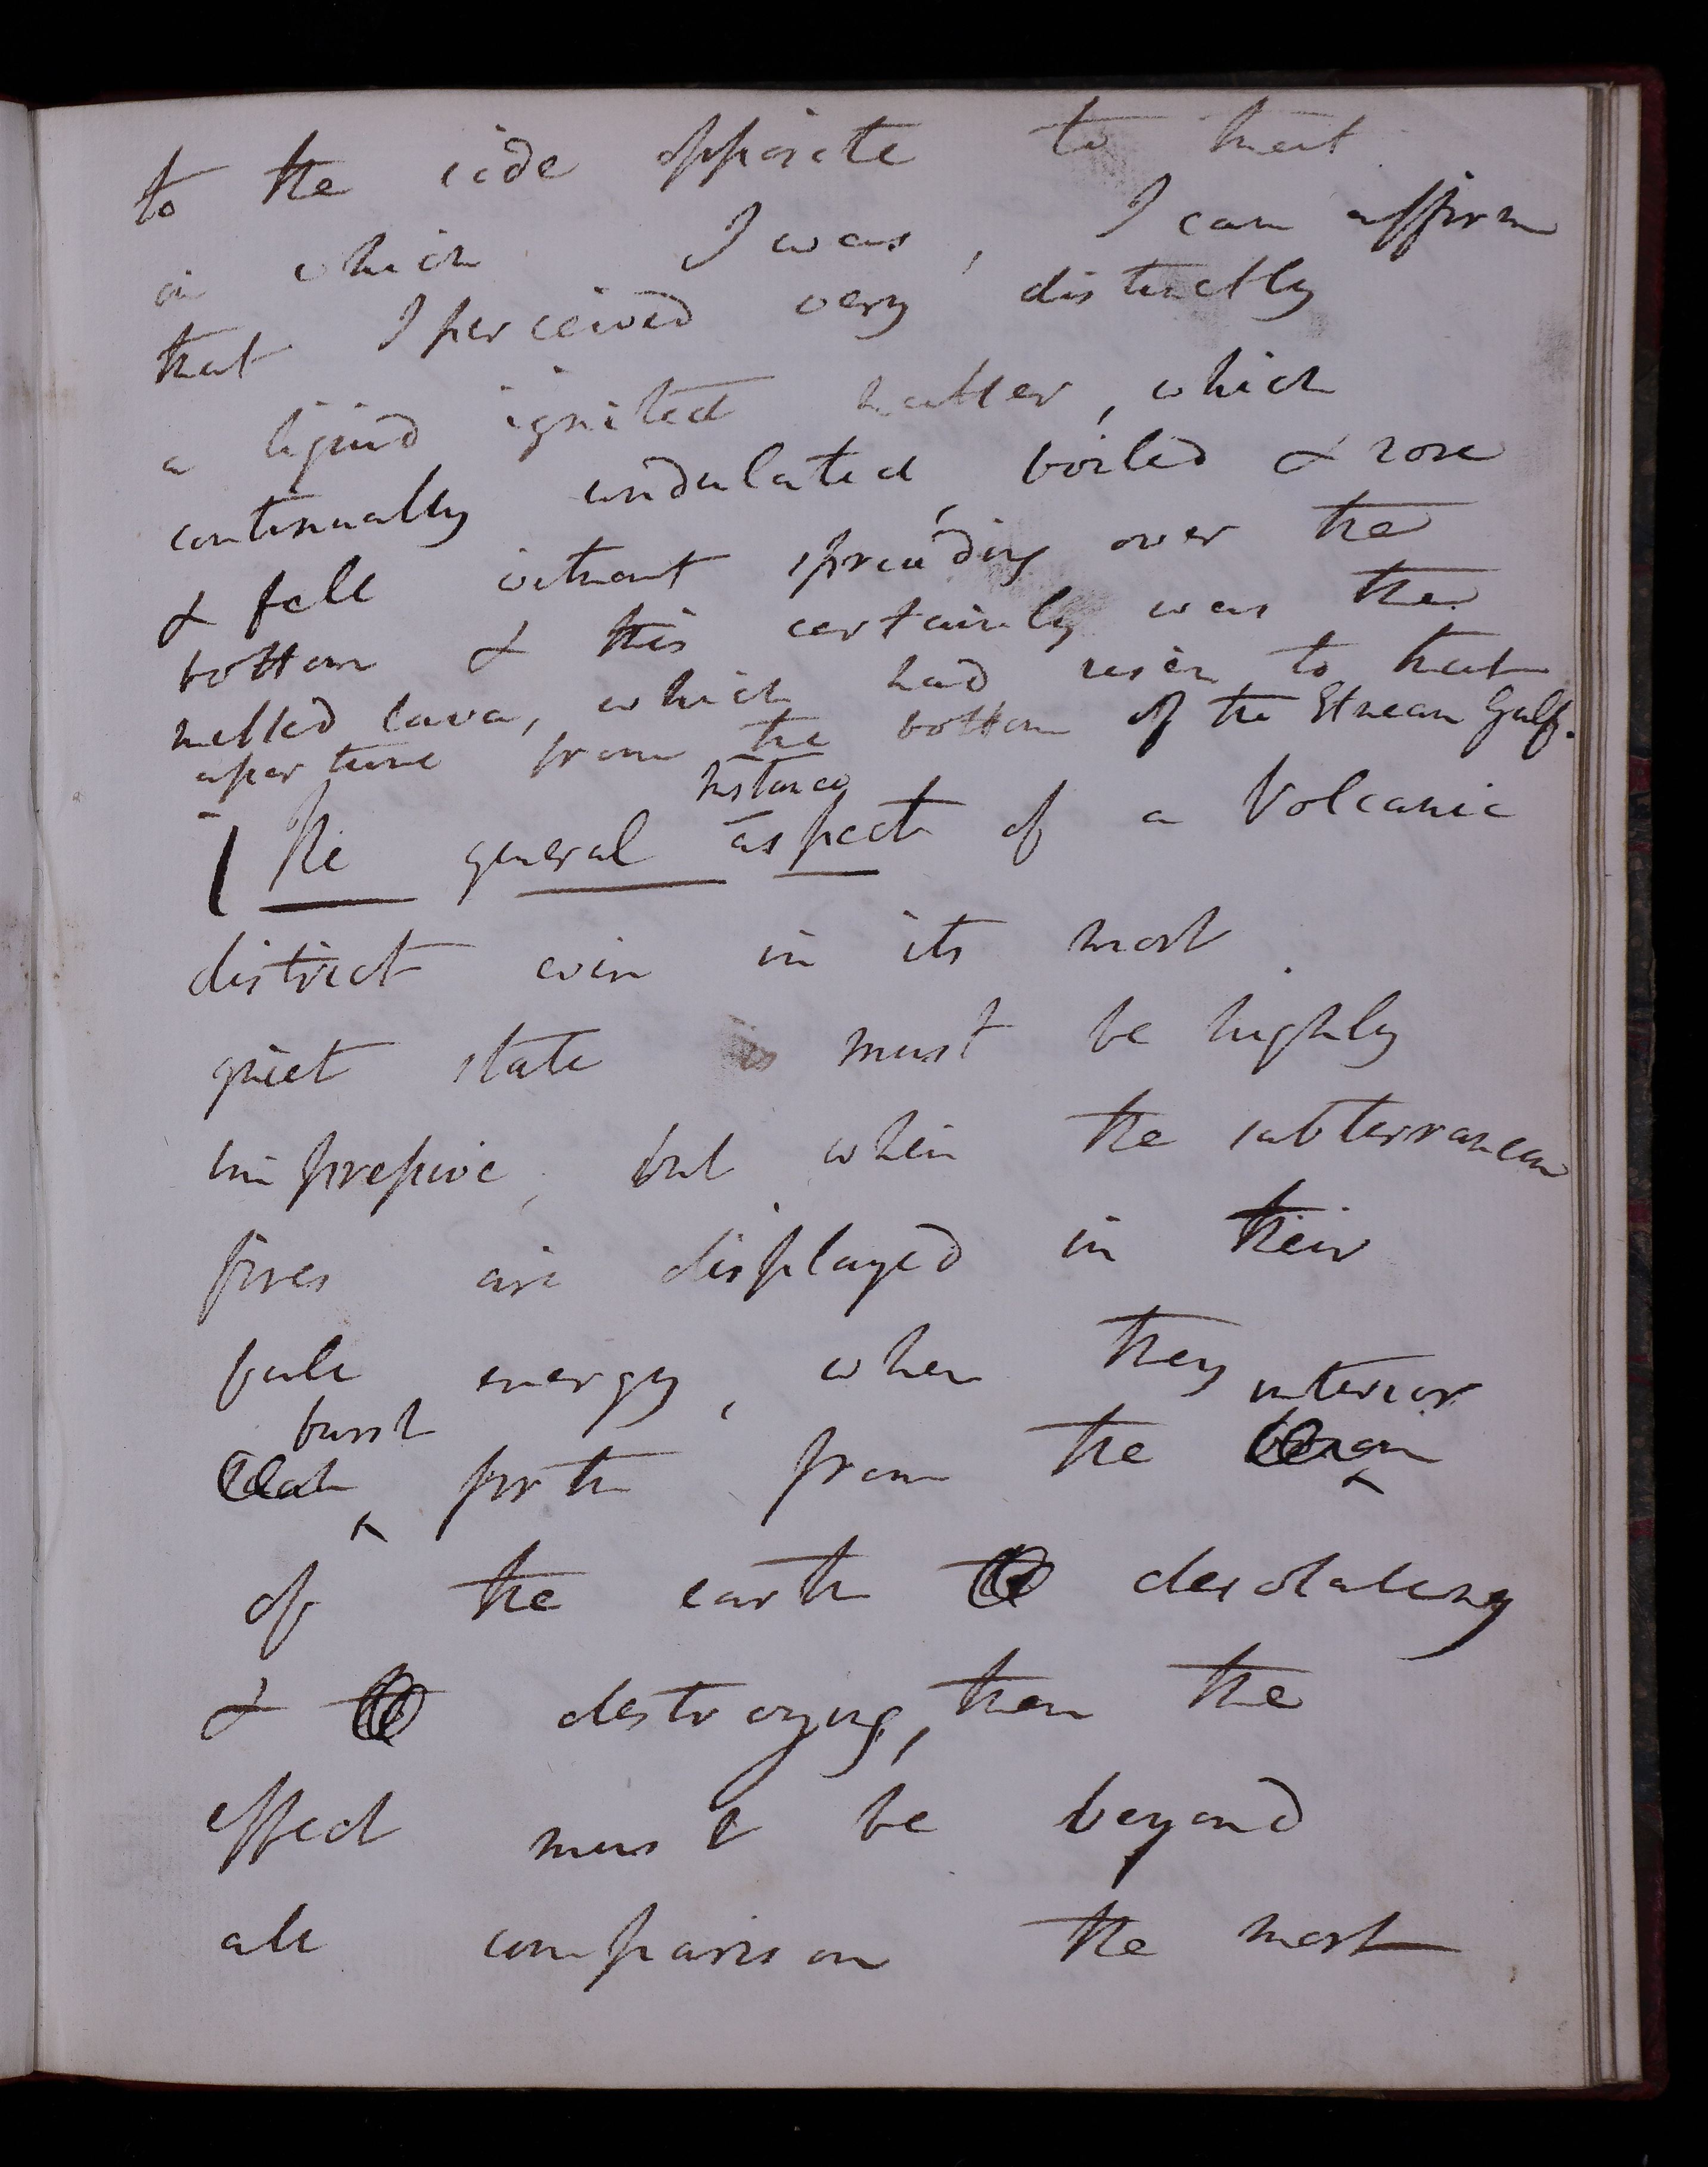 to the side opposite to that
in which I was, I can affirm
that I perceived very distinctly
a liquid ignited matter, which
continually undulated, boiled & rose
& fell without spreading over the
bottom & this certainly was the
melted lava, which had risen to that
aperture from the bottom of the Etnean Gulf.
The general aspect of a Volcanic
district even in its most
quiet state must be highly
impressive, but when the subterranean
fires are displayed in their
full energy, when they
burst interior
forth from the
of the earth desolating
& destroying, then the
effect must be beyond
all comparison the most